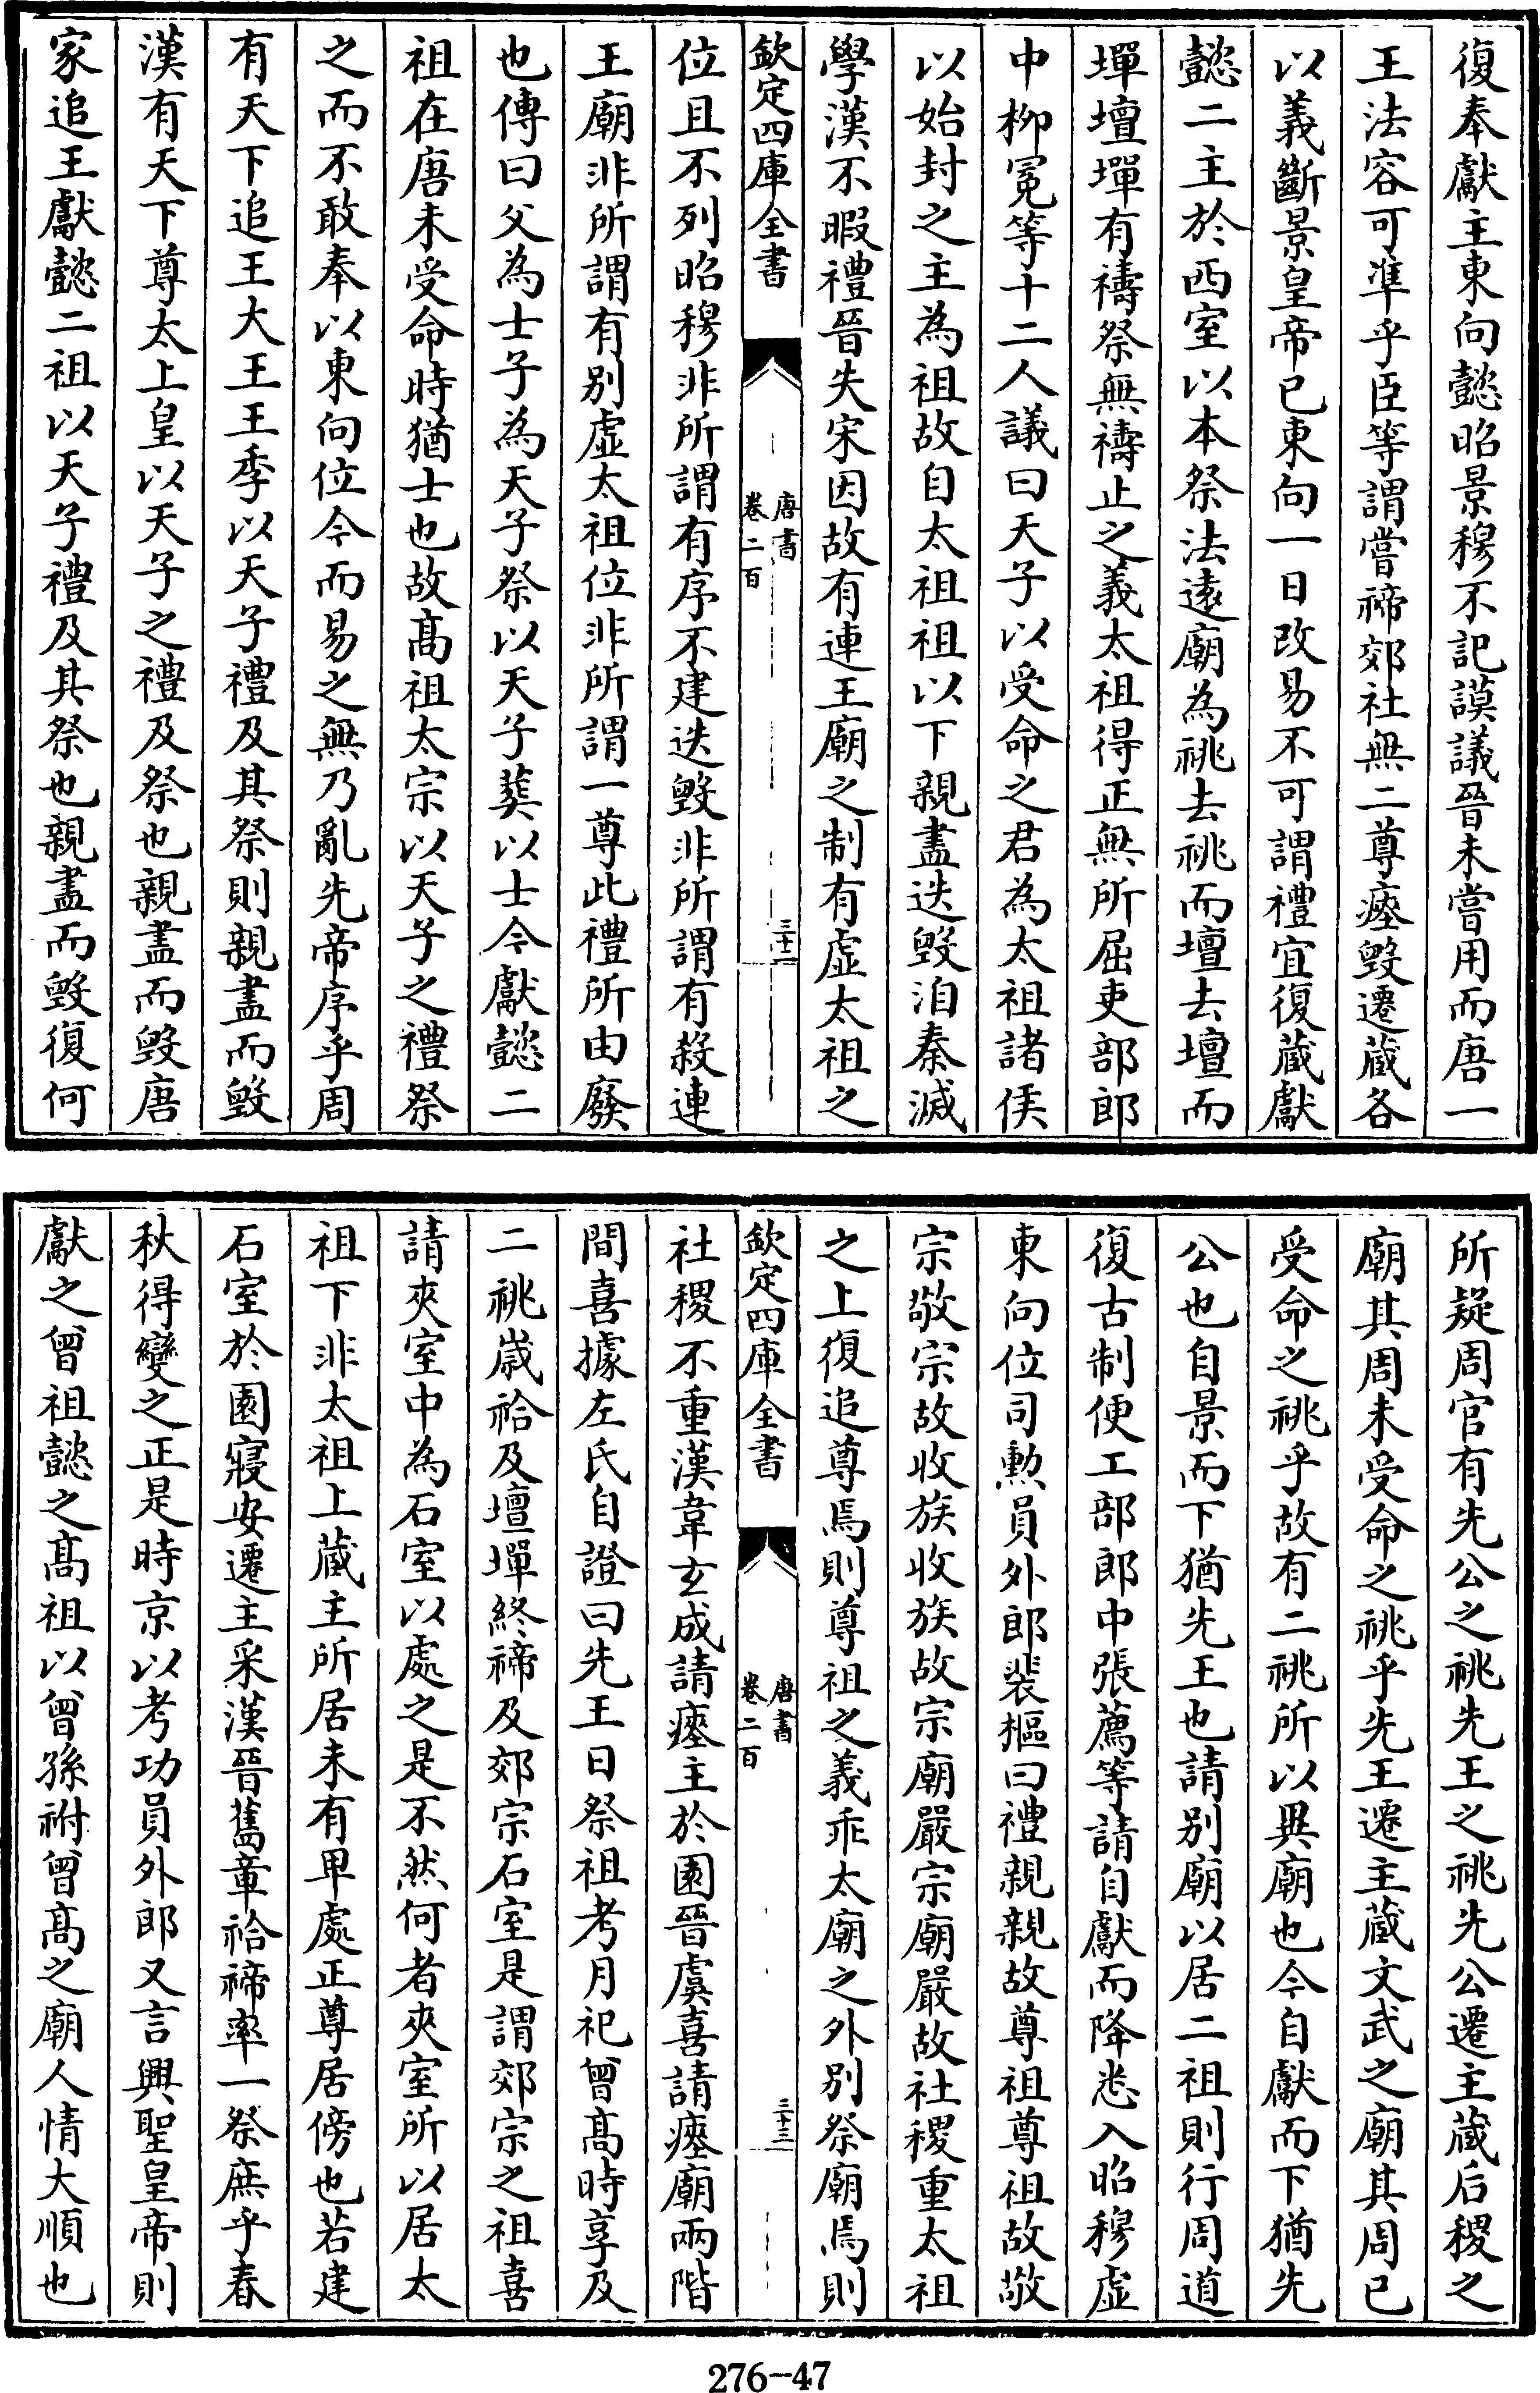 復奉獻主東向懿昭景穆不記謨議晉未嘗用而唐一
王法容可準乎臣等謂嘗禘郊社無二尊瘞毀遷藏各
以義斷景皇帝已東向一日改易不可謂禮宜復藏獻
懿二主於西室以本祭法遠廟為祧去祧而壇去壇而
墠壇墠有禱祭無禱止之義太祖得正無所屈吏部郎
中柳冕等十二人議曰天子以受命之君為太祖諸侯
以始封之主為祖故自太祖祖以下親盡迭毀洎秦滅
學漢不暇禮晉失宋因故有連王廟之制有虛太祖之
欽定四庫全書
唐書
卷二百
三十二
位且不列昭穆非所謂有序不建迭毀非所謂有殺連
王廟非所謂有別虛太祖位非所謂一尊此禮所由廢
也傳曰父為士子為天子祭以天子葬以士今獻懿二
祖在唐未受命時猶士也故髙祖太宗以天子之禮祭
之而不敢奉以東向位今而易之無乃亂先帝序乎周
有天下追王大王王季以天子禮及其祭則親盡而毀
漢有天下尊太上皇以天子之禮及祭也親盡而毀唐
家追王獻懿二祖以天子禮及其祭也親盡而毀復何
所疑周官有先公之祧先王之祧先公遷主藏后稷之
廟其周未受命之祧乎先王遷主藏文武之廟其周已
受命之祧乎故有二祧所以異廟也今自獻而下猶先
公也自景而下猶先王也請别廟以居二祖則行周道
復古制便工部郎中張薦等請自獻而降悉入昭穆虛
東向位司勲員外郎裴樞曰禮親親故尊祖尊祖故敬
宗敬宗故收族收族故宗廟嚴宗廟嚴故社稷重太祖
之上復追尊焉則尊祖之義乖太廟之外别祭廟焉則
欽定四庫全書
唐書
卷二百
三十三
社稷不重漢韋玄成請瘞主於園晉虞喜請瘞廟兩階
間喜據左氏自證曰先王日祭祖考月祀曾髙時享及
二祧歲祫及壇墠終禘及郊宗石室是謂郊宗之祖喜
請夾室中為石室以處之是不然何者夾室所以居太
祖下非太祖上藏主所居未有卑處正尊居傍也若建
石室於園寢安遷主采漢晉舊章祫禘率一祭庶乎春
秋得變之正是時京以考功員外郎又言興聖皇帝則
獻之曾祖懿之髙祖以曾孫祔曾髙之廟人情大順也
276-47